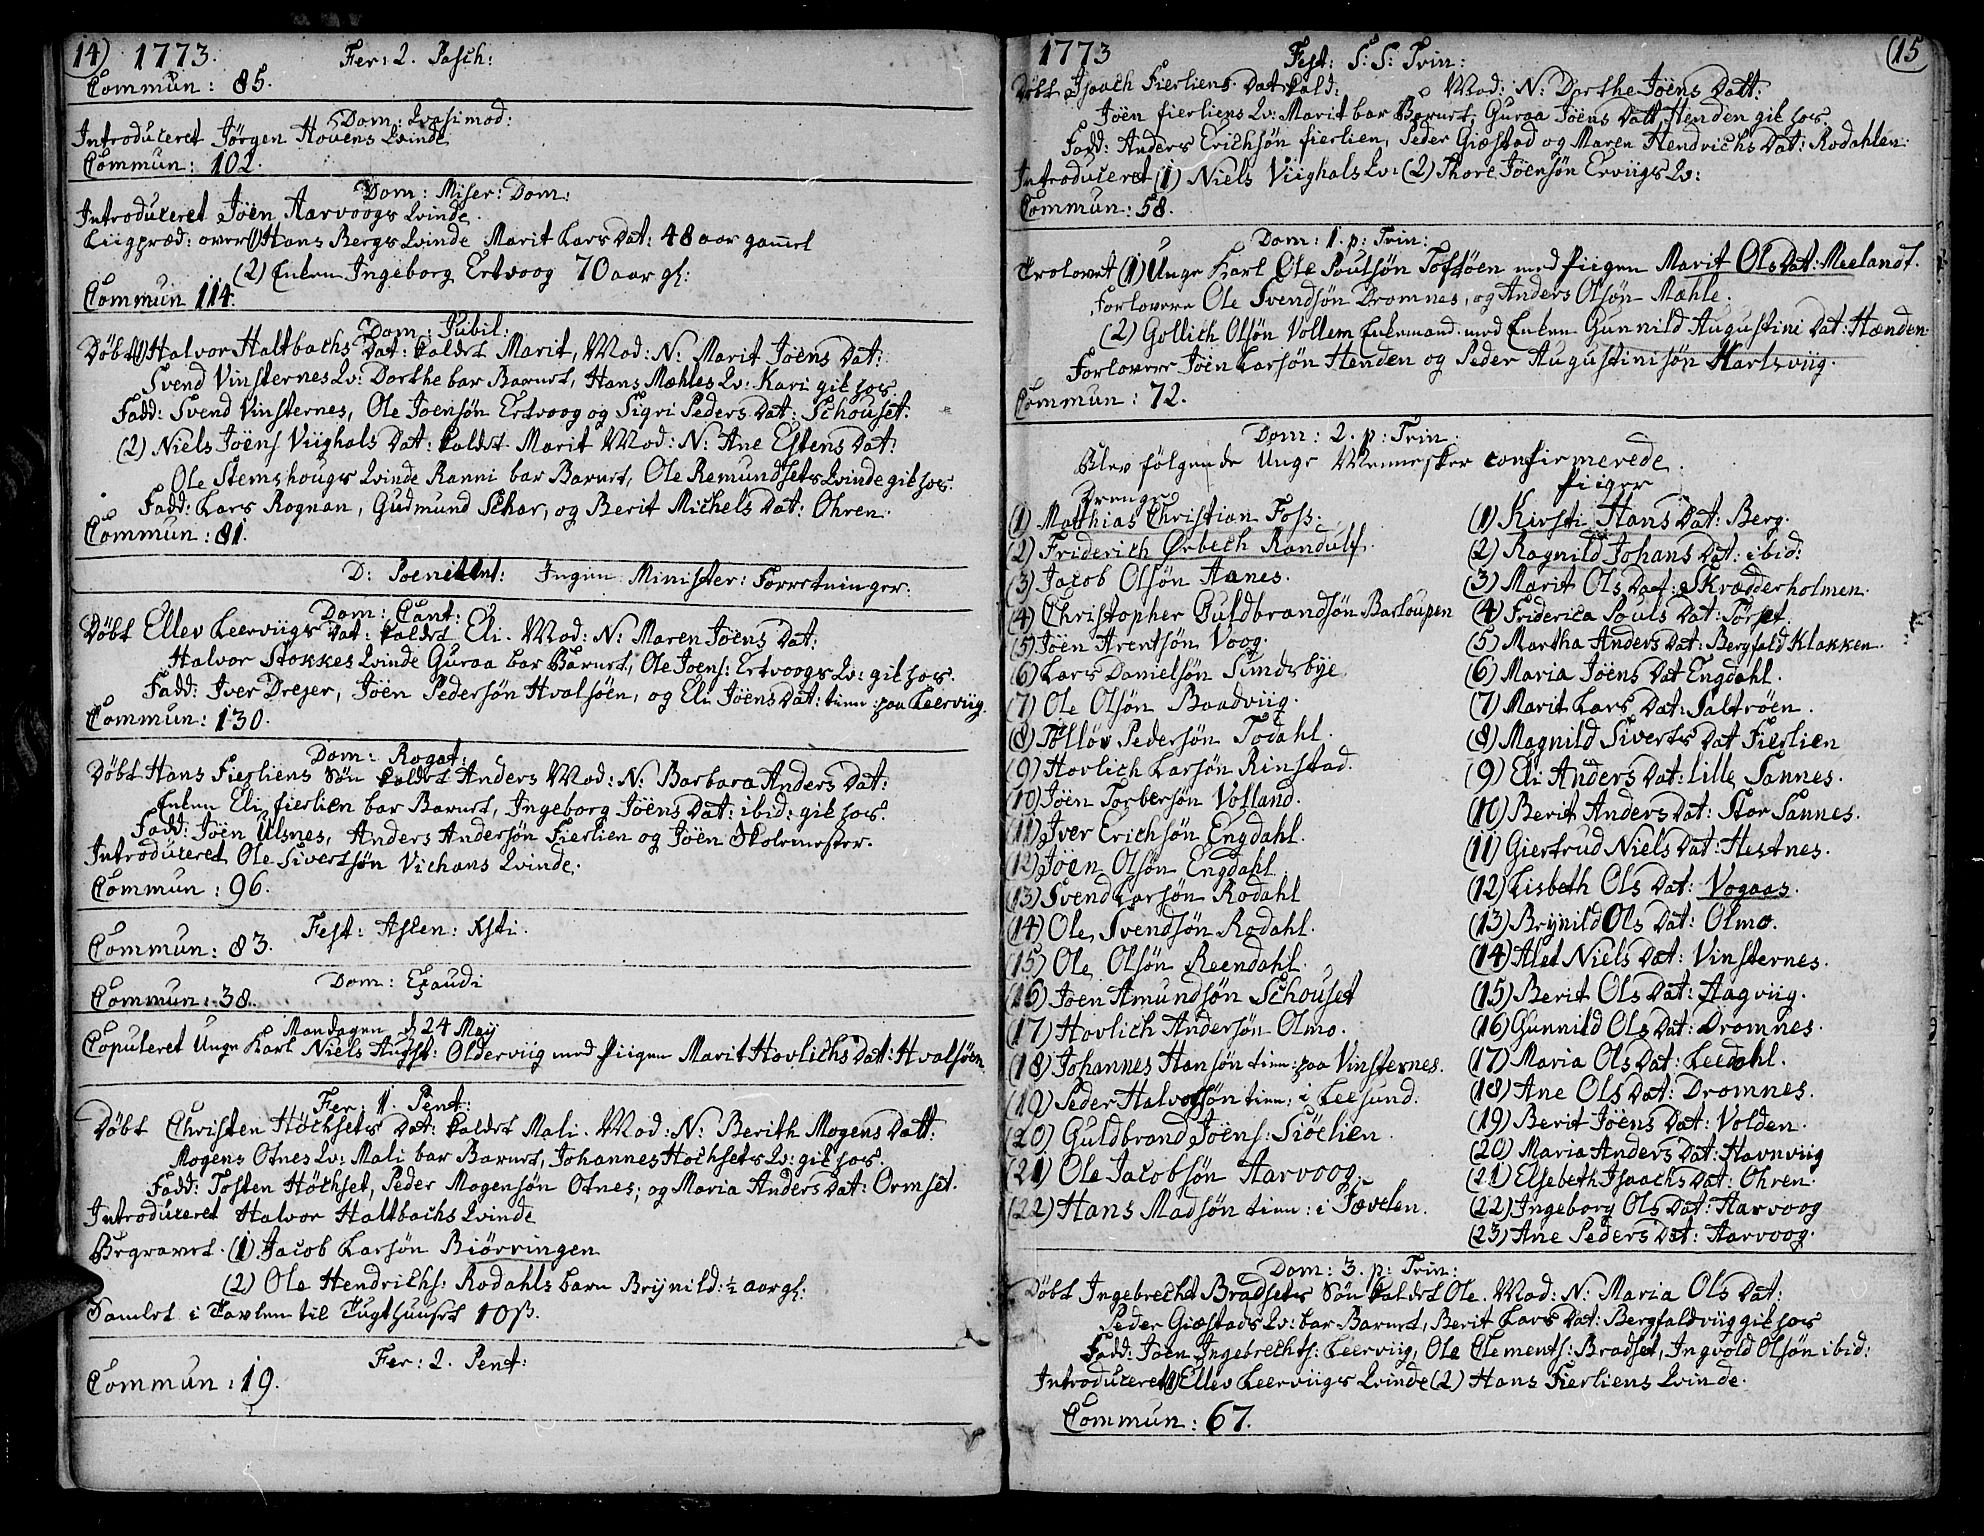 14) 1773. Fer: 2. Pasch:
Commun: 85.
Dom: Qvasimod:
Introduceret Jørgen Hovens Qvinde
Commun: 102.
Dom: Miser: Dom:
Introduceret Joen Aarvoogs Qvinde.
Liigpræd: over (1) Hans Bergs Qvinde Marit Lars Dat: 48 aar gamel
(2) Enken Ingeborg Ertvoog 70 aar gl:
Commun 114.
Dom: Jubil:
Døbt (1) Halvor Haltbachs Dat: kaldet Marit, Mod: N: Marit Joens Dat:
Svend Vinsternes Qv: Dorthe bar Barnet, Hans Mæhles Qv: Kari gik hos.
Fadd: Svend Vinsternes, Ole Joensøn Ertvoog og Sigri Peders Dat: Schouset.
(2) Niels Joens Viighals Dat: kaldet Marit Mod: N: Ane Estens Dat:
Ole Stemshougs Qvinde Ranni bar Barnet, Ole Remundsets Qvinde gik hos.
Fadd: Lars Rognan, Gudmund Schar, og Berit Michels Dat: Ohren.
Commun: 81.
D: Poenitent: Ingen Minister: Forretninger.
Dom: Cant:
Døbt Ellev Leerviigs Dat: kaldet Eli. Mod: N: Maren Joens Dat:
Halvor Stokkes Qvinde Guraa bar Barnet, Ole Joens: Ertvoogs Qv: gik hos.
Fadd: Iver Drejer, Joen Pedersøn Hvalsøen, og Eli Joens Dat: tien: paa Leerviig.
Commun: 130.
Dom: Rogat:
Døbt Hans Fierliens Søn kaldet Anders Mod: N: Barbara Anders Dat:
Enken Eli fierlien bar Barnet, Ingeborg Joens Dat: ibid: gik hos.
Fadd: Joen Ulsnes, Anders Andersøn Fierlien og Joen Skolemester.
Introduceret Ole Sivertsøn Vichans Qvinde.
Commun: 96.
Fest: Ascen: Xsti.
Commun: 83.
Dom: Exaudi
Commun: 38.
Mandagen d 24 May
Copuleret Unge Karl Niels Augst: Olderviig med Piigen Marit Hovlichs Dat: Hvalsøen
Fer: 1. Pent:
Døbt Christen Höchsets Dat: kaldet Mali. Mod: N: Berith Mogens Datt:
Mogens Otnes Qv: Mali bar Barnet, Johannes Höchsets Qv: gik hos.
Fadd: Tosten Höchset, Peder Mogensøn Otnes, og Maria Anders Dat: Ormset.
Introduceret Halvor Haltbachs Qvinde
Begravet. (1) Jacob Larsøn Biørringen
(2) Ole Hendrichs: Rodahls barn Brynild: ½ aar gl:
Samlet i Tavlen til Tugthuuset 10 ß.
Fer: 2. Pent:
Commun: 19.
1773 Fest: S: S: Trin: (15
Døbt Isaach Fierliens Dat kald: Mod: N: Dorthe Joens Datt:
Joen fierliens Qv: Marit bar Barnet, Guraa Joens Datt Henden gik hos.
Fadd: Anders Erichsøn fierlien, Peder Giestad og Maren Hendrichs Dat: Rodahlen:
Introduceret (1) Niels Viighals Qv: (2) Thore Joensøn Erviigs Qv:
Commun: 58.
Dom: 1. p: Trin:
Trolovet (1) Unge Karl Ole Poulsøn Toftøen med Piigen Marit Ols Dat: Meelandt.
Forlovere Ole Svendsøn Dromnes, og Anders Olsøn Mæhle.
(2) Gollich Olsøn Vollem Enkemand med Enken Gunnild Augustini Dat: Hænden
Forlovere Joen Larsøn Henden og Peder Augustinisøn Karlsviig.
Commun: 72.
Dom: 2. p: Trin:
Blev følgende Unge Mennesker confirmerede.
Drenge
(1) Matthias Christian Foss.
(2) Friderich Ørbech Randulf.
(3) Jacob Olsøn Aanes.
(4) Christopher Guldbrandsøn Barloupen
(5) Joen Arentsøn Voog.
(6) Lars Danielsøn Sundsbye
(7) Ole Olsøn Baadviig.
(8) Tølløv Pedersøn Todahl.
(9) Hovlich Larsøn Rinstad.
(10) Joen Torbersøn Volland.
(11) Iver Erichsøn Engdahl.
(12) Joen Olsøn Engdahl
(13) Svend Larsøn Rodahl
(14) Ole Svendsøn Rodahl.
(15) Ole Olsøn Reendahl.
(16) Joen Amundsøn Schouset
(17) Hovlich Andersøn Olmo.
(18) Johannes Hansøn tien: paa Vinsternes.
(19) Peder Halvorsøn tien: i Leesund.
(20) Guldbrand Joens: Siøelien.
(21) Ole Jacobsøn Aarvoog.
(22) Hans Madsøn tien: i Tævelen.
Piiger
(1) Kirsti Hans Dat: Berg.
(2) Ragnild Johans Dat: ibid:
(3) Marit Ols Dat: Skrædderholmen.
(4) Friderica Pouls Dat: Torset.
(5) Martha Anders Dat: Bergfald Klakken.
(6) Maria Joens Dat Engdahl.
(7) Marit Lars Dat: Saltrøen.
(8) Magnild Siverts Dat Fierlien
(9) Eli Anders Dat: Lille Sannes.
(10) Berit Anders Dat: Stor Sannes.
(11) Giertrud Niels Dat: Hestnes.
(12) Lisbeth Ols Dat: Vogaas.
(13) Brynild Ols Dat: Olmo.
(14) Alet Niels Dat: Vinsternes.
(15) Berit Ols Dat: Hagviig.
(16) Gunnild Ols Dat: Dromnes.
(17) Maria Ols Dat: Leedahl.
(18) Ane Ols Dat: Dromnes.
(19) Berit Joens Dat: Volden.
(20) Maria Anders Dat: Havnviig
(21) Elsebeth Isaachs Dat: Ohren.
(22) Ingeborg Ols Dat: Aarvoog
(23) Ane Peders Dat: Aarvoog.
Dom: 3. p: Trin:
Døbt Ingebrecht Bradsets Søn kaldet Ole. Mod: N: Maria Ols Dat:
Peder Giæstads Qv: bar Barnet, Berit Lars Dat: Bergfaldviig gik hos
Fadd: Joen Ingebrechts: Leerviig, Ole Clements: Bradset, Ingvold Olsøn ibid:
Introduceret (1) Ellev Leerviigs Qvinde (2) Hans Fierliens Qvinde.
Commun: 67.